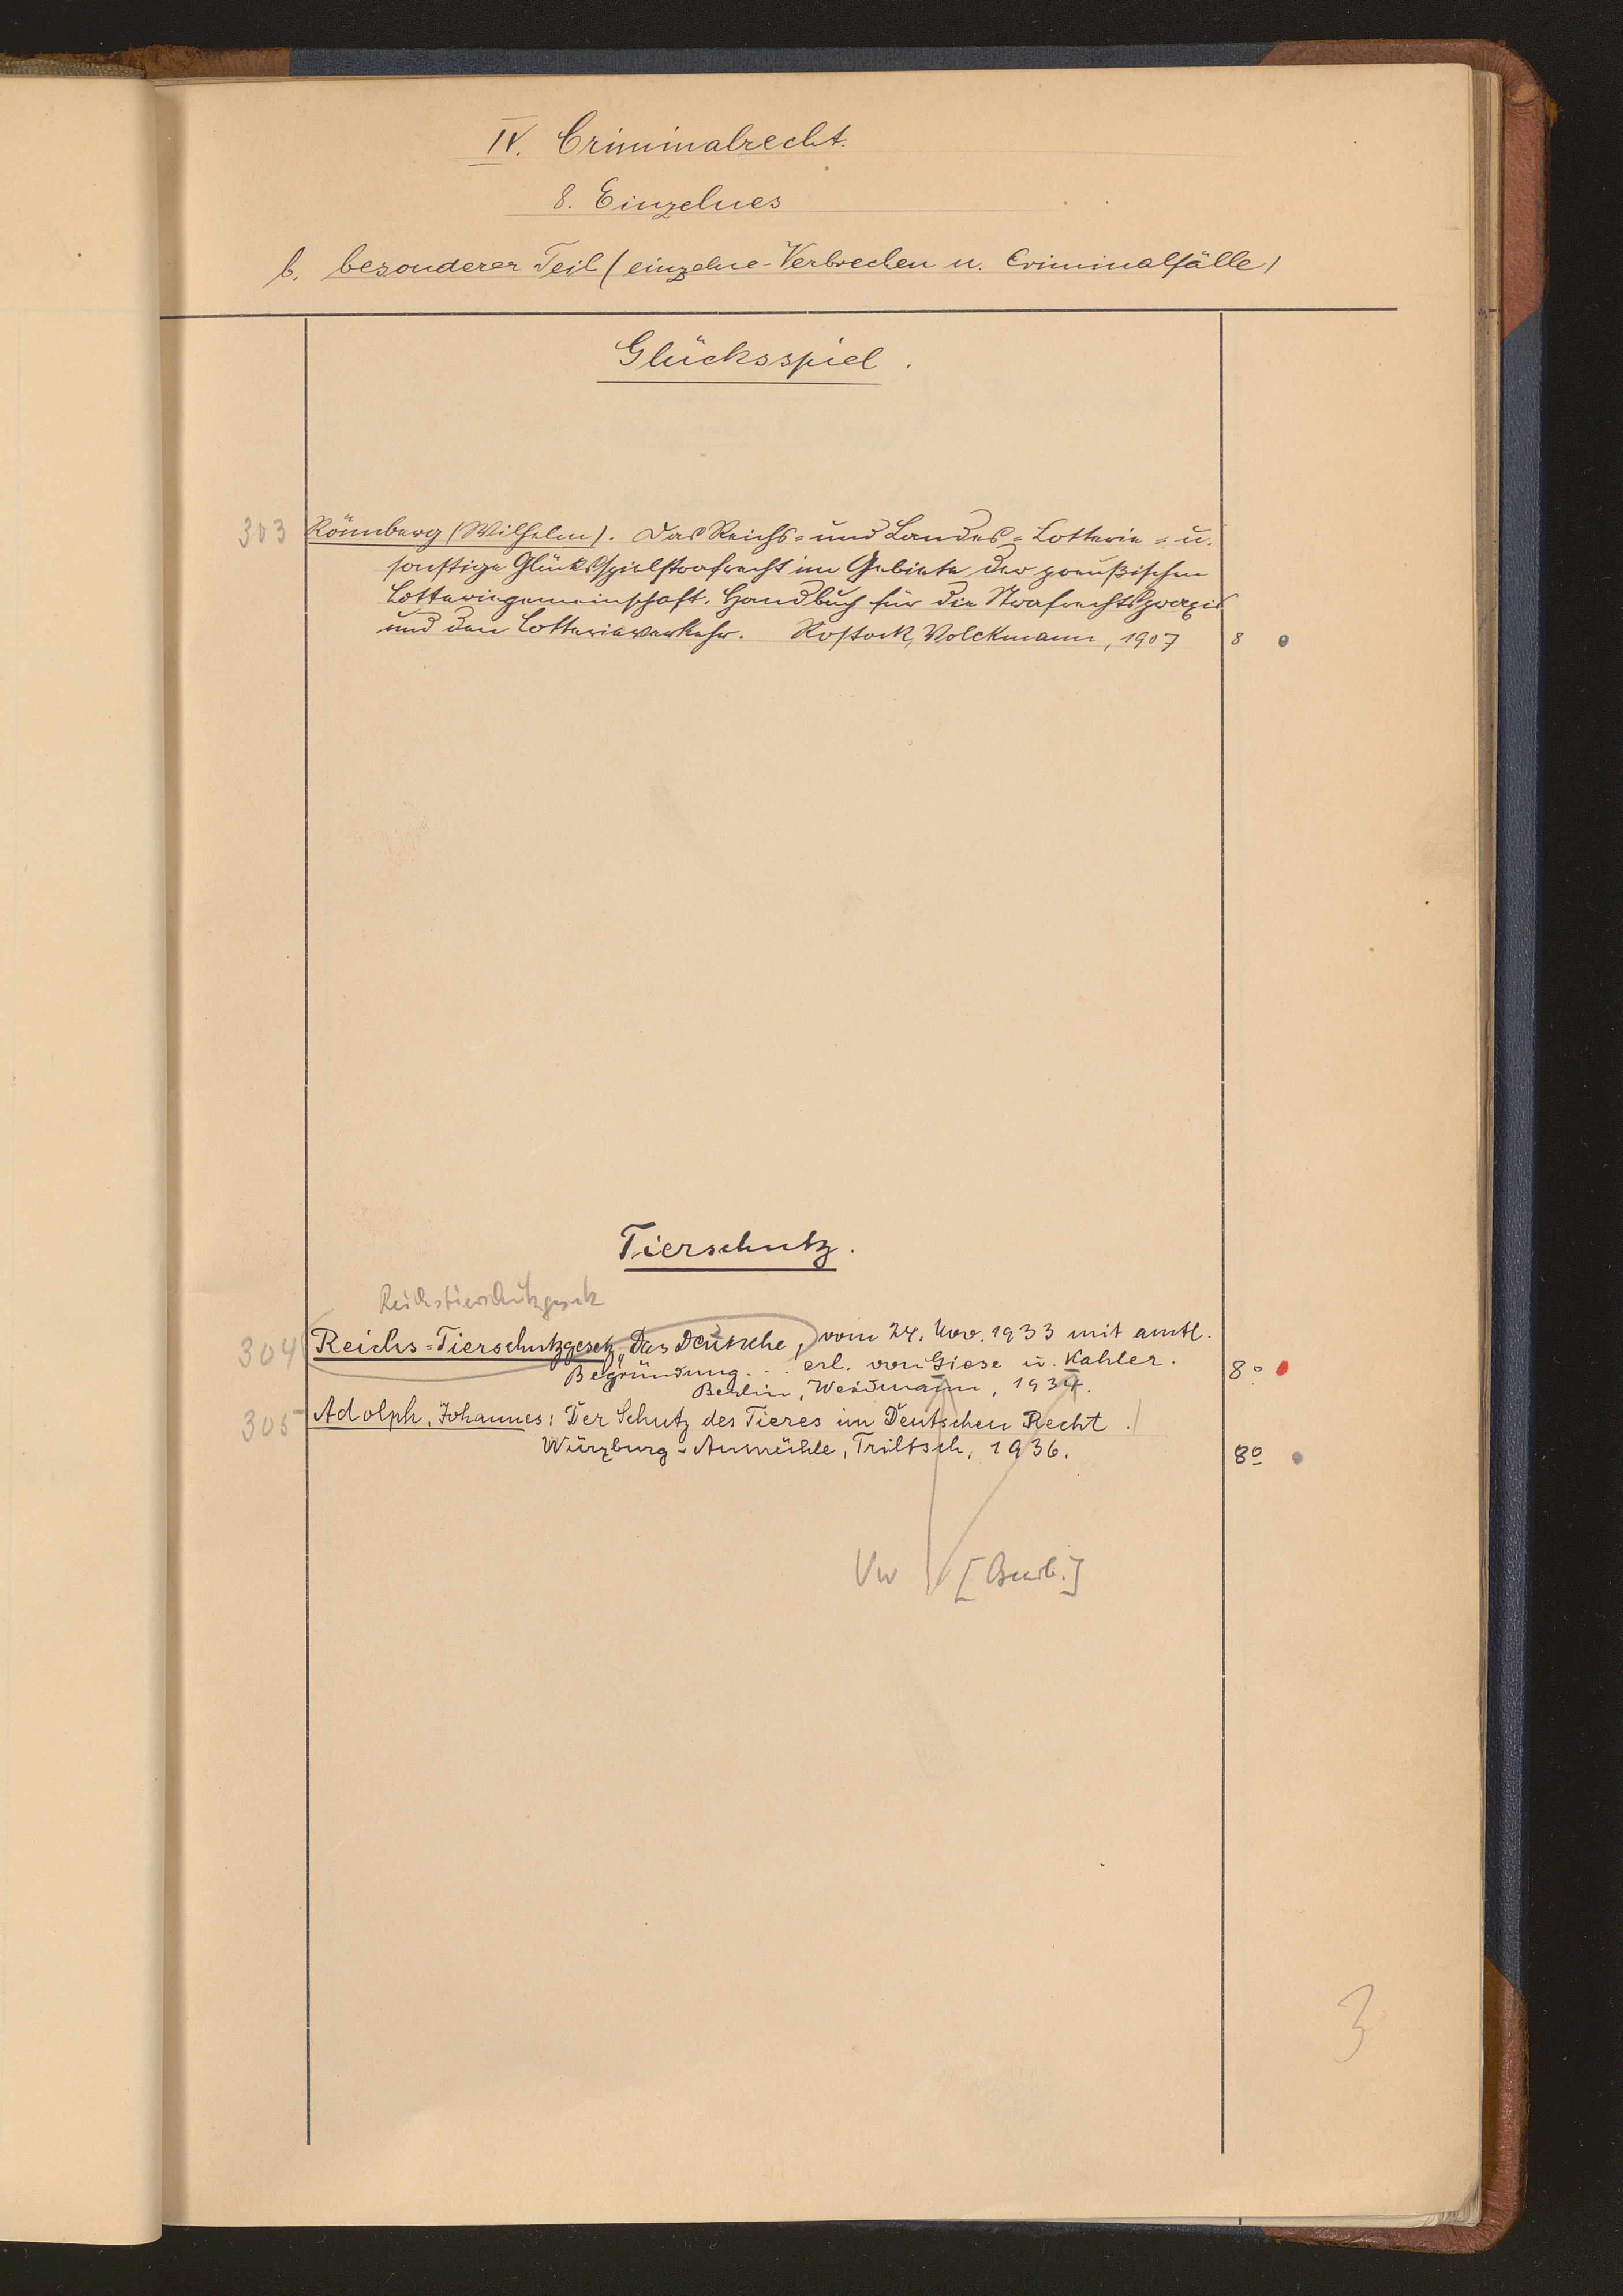 IV. Criminalrecht.
8. Einzelnes
b. besonderer Teil (einzelne Verbrechen u. Criminalfälle)
Glücksspiel.
303 Rönnberg (Wilhelm). Das Reichs- und Landes-Lotterie- u.
sonstige Glücksspielstrafrecht im Gebiete der preußischen
Lotteriegemeinschaft. Handbuch für die Strafrechtspraxis
und den Lotterieverkehr. Rostock, Volckmann, 1907 8
Tierschutz.
Reichstierschutzgesetz
304 Reichs-Tierschutzgesetz, Das Deutsche, vom 24. Nov. 1933 mit amtl.
Begründung... erl. von Giese u. Kahler. 8°
Berlin, Weidmann, 1934.
305 Adolph, Johannes: Der Schutz des Tieres im Deutschen Recht.
Würzburg-Aumühle, Triltsch, 1936. 8°
Vw
3